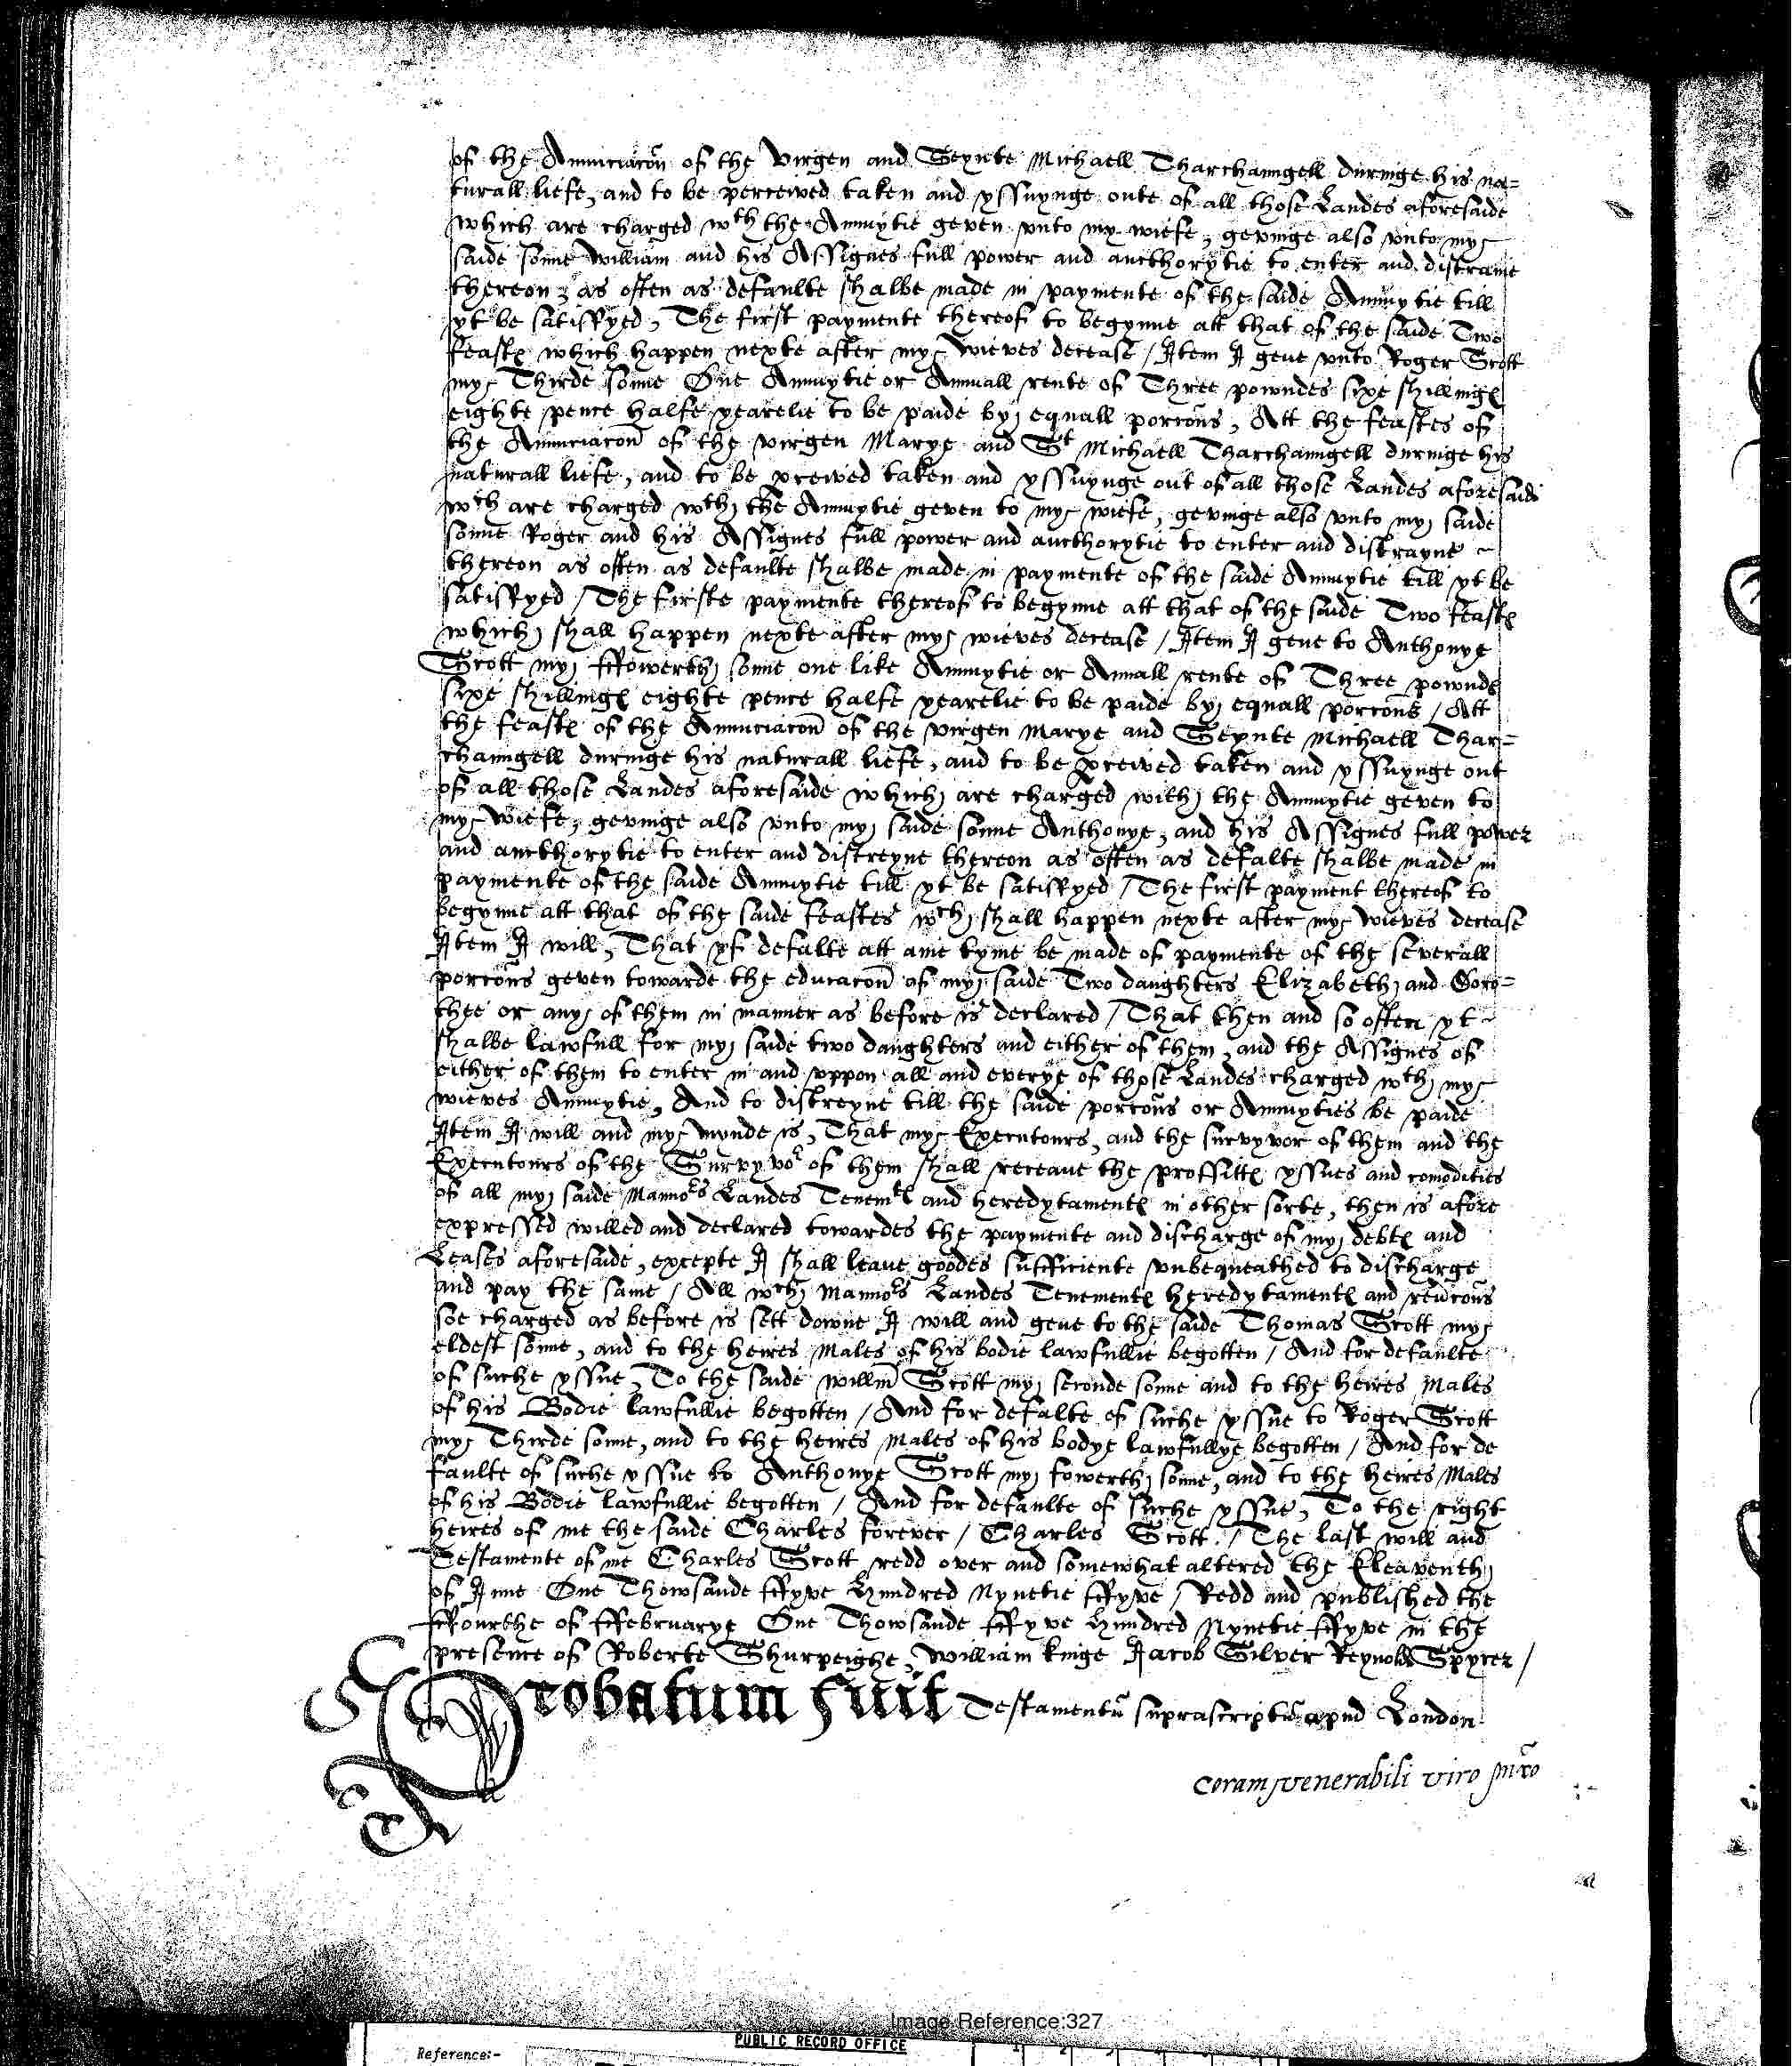 of the Annunciacõn of the Virgen and Seynte Michaell Tharchanngell duringe his na=
turall liefe, and to be perceived taken and yssuynge oute of all those Landes aforesaide
which are charged wth the Annuytie geven vnto my wiefe, gevinge also vnto my
saide sonne William and his Assignes full power and aucthorytie to enter and distraine
thereon, as often as defaulte shalbe made in paymente of the saide Annuytie till
yt be satisfyed, The first paymente thereof to begynne att that of the saide Two
feastes which happen nexte after my wieves decease / Item I geve vnto Roger Scott
my Thirde sonne One Annuytie or Annuall rente of Three powndes sixe shillinges
eighte pence halfe yearelie to be paide by equall porcõns, Att the feastes of
the Annunciacõn of the virgen Marye and St Michaell Tharchanngell duringe his
naturall liefe, and to be pceived taken and yssuynge out of all those Landes aforesaide
wch are charged wth the Annuytie geven to my wiefe, gevinge also vnto my saide
sonne Roger and his Assignes full power and aucthorytie to enter and distrayne
thereon as often as defaulte shalbe made in paymente of the saide Annuytie till yt be
satisfyed / The firste paymente thereof to begynne att that of the saide Two feastes
which shall happen nexte after my wieves decease / Item I geve to Anthonye
Scott my ffowerth sonne one like Annuytie or Annuall rente of Three pownds
sixe shillinges eighte pence halfe yearelie to be paide by equall porcõns / Att
the feastes of the Annunciacõn of the virgen Marye and Seynte Michaell Thar=
channgell duringe his naturall liefe, and to be pceived taken and yssuynge out
of all those Landes aforesaide which are charged with the Annuytie geven to
my wiefe, gevinge also vnto my saide sonne Anthonye, and his Assignes full power
and aucthorytie to enter and distreyne thereon as often as defalte shalbe made in
paymente of the saide Annuytie till yt be satisfyed / The first payment thereof to
begynne att that of the saide feastes wch shall happen nexte after my wieves decease
Item I will, That yf defalte att anie tyme be made of paymente of the severall
porcõns geven towarde the educacõn of my saide Two daughters Elizabeth and Doro=
thee or any of them in manner as before is declared / That then and so often yt
shalbe lawfull for my saide two daughters and either of them, and the Assignes of
either of them to enter in and vppon all and everye of those Landes charged wth my
wieves Annuytie, And to distreyne till the saide porcõns or Annuyties be paide
Item I will and my mynde is, That my Executours, and the survyvor of them and the
Executours of the Survyvor of them shall receave the proffittes yssues and comodities
of all my saide Mannors Landes Tenemtes and heredytamentes in other sorte, then is afore
expressed willed and declared towardes the paymente and discharge of my debtes and
Leases aforesaide, excepte I shall leave goodes sufficiente vnbequeathed to discharge
and pay the same / All wch Mannors Landes Tenementes heredytamentes and revcõns
soe charged as before is sett downe I will and geve to the saide Thomas Scott my
eldest sonne, and to the heires Males of his bodie lawfullie begotten / And for defaulte
of suche yssue, To the saide willm̃ Scott my seconde sonne and to the heires Males
of his Bodie lawfullie begotten / And for defalte of suche yssue to Roger Scott
my Thirde sonne, and to the heires Males of his bodye lawfullye begotten / And for de
faulte of suche yssue to Anthonye Scott my fowerth sonne, and to the heires Males
of his Bodie lawfullie begotten / And for defaulte of suche yssue, To the right
heires of me the saide Charles forever / Charles Scott. / The last will and
Testamente of me Charles Scott redd over and somewhat altered the Eleaventh
of June One Thowsande ffyve Hundred Nynetie ffyve / Redd and published the
ffourthe of ffebruarye One Thowsande ffyve Hundred Nynetie ffyve in the
presence of Roberte Shurpeighe, William Kinge Jacob Silver Reynolds Spycer /
Probatum fuit Testamentũ suprascriptũ apud London
coram venerabili viro
Image Reference:327
PUBLIC RECORD OFFICE
Reference:-